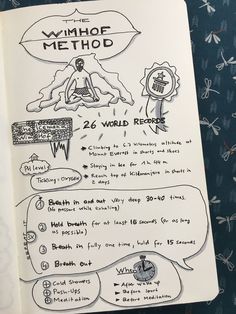 THE
WIMHOF
METHOD
26 WORLD RECORDS
Climbing to 6.7 kilometers altitude at
Mount Everest in shorts and shoes
Staying in ice for 1 h 44 m
Reach top of Kilimanjaro in shorts in
2 days
PH levels
Tickling = Oxygen
1 Breath in and out very deep 30-40 times
(No pressure while exhaling)
2 Hold breath for at least 15 seconds (or as long
as possible)
3 Breath in fully one time, hold for 15 seconds
4 Breath out
REPEAT
When
+ Cold Showers
+ Push-Ups
+ Meditation
After wake up
Before sport
Before Meditation